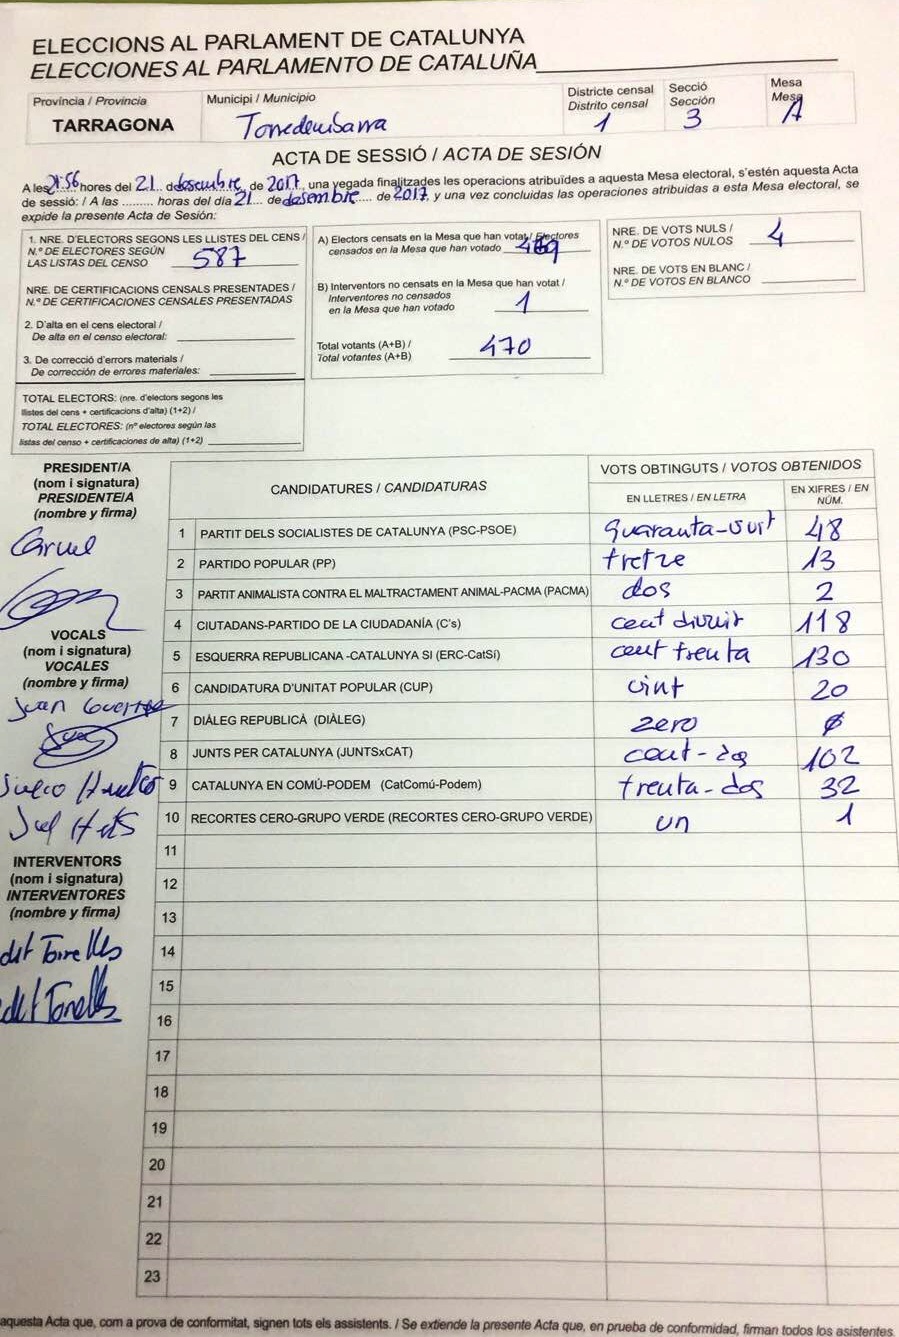 ELECCIONS AL PARLAMENT DE CATALUNYA
ELECCIONES AL PARLAMENTO DE CATALUÑA
Província / Provincia
TARRAGONA
Municipi / Municipio
Torredembarra
Districte censal
Distrito censal
1
Secció
Sección
3
Mesa
Mesa
A
ACTA DE SESSIÓ / ACTA DE SESIÓN
A les 21:56 hores del 21 desembre de 2017, una vegada finalitzades les operacions atribuïdes a aquesta Mesa electoral, s'estén aquesta Acta
de sessió: / A las ......... horas del día 21 de desembre de 2017, y una vez concluidas las operaciones atribuidas a esta Mesa electoral, se
expide la presente Acta de Sesión:
1. NRE. D'ELECTORS SEGONS LES LLISTES DEL CENS /
N.º DE ELECTORES SEGÚN
LAS LISTAS DEL CENSO 587
NRE. DE CERTIFICACIONS CENSALS PRESENTADES /
N.º DE CERTIFICACIONES CENSALES PRESENTADAS
2. D'alta en el cens electoral /
De alta en el censo electoral:
3. De correcció d'errors materials /
De corrección de errores materiales:
TOTAL ELECTORS: (nre. d'electors segons les
llistes del cens + certificacions d'alta) (1+2) /
TOTAL ELECTORES: (nº electores según las
listas del censo + certificaciones de alta) (1+2)
A) Electors censats en la Mesa que han votat / Electores
censados en la Mesa que han votado 469
B) Interventors no censats en la Mesa que han votat /
Interventores no censados
en la Mesa que han votado 1
Total votants (A+B) /
Total votantes (A+B) 470
NRE. DE VOTS NULS /
N.º DE VOTOS NULOS 4
NRE. DE VOTS EN BLANC /
N.º DE VOTOS EN BLANCO
PRESIDENT/A
(nom i signatura)
PRESIDENTE/A
(nombre y firma)
VOCALS
(nom i signatura)
VOCALES
(nombre y firma)
Juan
INTERVENTORS
(nom i signatura)
INTERVENTORES
(nombre y firma)
Torrelles
Torrelles
CANDIDATURES / CANDIDATURAS
VOTS OBTINGUTS / VOTOS OBTENIDOS
EN LLETRES / EN LETRA
EN XIFRES / EN NÚM.
1 PARTIT DELS SOCIALISTES DE CATALUNYA (PSC-PSOE) quaranta-vuit 48
2 PARTIDO POPULAR (PP) tretze 13
3 PARTIT ANIMALISTA CONTRA EL MALTRACTAMENT ANIMAL-PACMA (PACMA) dos 2
4 CIUTADANS-PARTIDO DE LA CIUDADANÍA (C's) cent divuit 118
5 ESQUERRA REPUBLICANA -CATALUNYA SI (ERC-CatSí) cent trenta 130
6 CANDIDATURA D'UNITAT POPULAR (CUP) vint 20
7 DIÀLEG REPUBLICÀ (DIÀLEG) zero 0
8 JUNTS PER CATALUNYA (JUNTSxCAT) cent-dos 102
9 CATALUNYA EN COMÚ-PODEM (CatComú-Podem) trenta-dos 32
10 RECORTES CERO-GRUPO VERDE (RECORTES CERO-GRUPO VERDE) un 1
11
12
13
14
15
16
17
18
19
20
21
22
23
aquesta Acta que, com a prova de conformitat, signen tots els assistents. / Se extiende la presente Acta que, en prueba de conformidad, firman todos los asistentes.